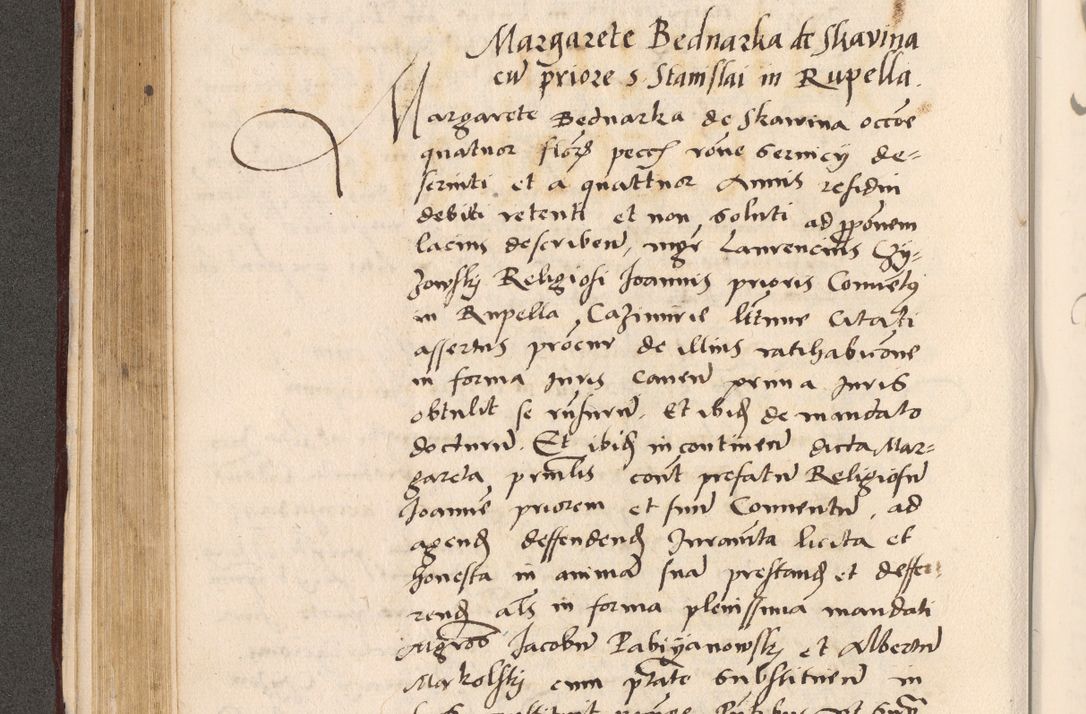 Margarete Bednarka de Skavina
cu priore s Stanislai in Rupella.
Margarete Bednarka de Skawina occoe
quatuor flor pecc rone servicy de-
serviti et a quattuor Annis residui
debiti retenti et non soluti ad pponem
lacius describen, mgr Laurencius Czy-
zowskj Religiosi Joannis prioris Conventus
in Rupella Cazimirie litime Citati
assertus procur de illius ratihabicone
in forma Juris caven prima Juris
obtulit se Et ibid de mandato
docturu. Et ibid incontinen dicta Mar-
gareta prinlis cont prefatu Religiosu
Joanne priorem et suu Conventu, ad
agend deffendend Juramta licita et
honesta in anima sua prestand et deffe-
rend als in forma plenissima mandati
mgros Jacobu Pabiyanowskj et Albertu
Markolskj cum ptate substituen in